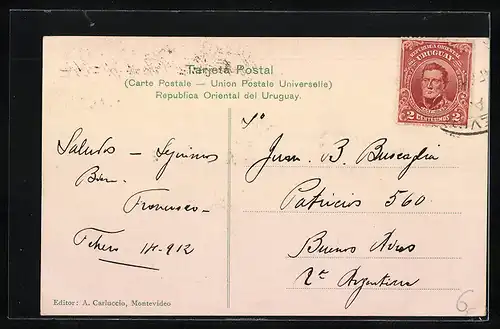 Tarjeta Postal
(Carte Postale — Union Postale Universelle)
Republica Oriental del Uruguay.
REPUBLICA ORIENTAL
URUGUAY
2 CENTESIMOS 2
Saludos — Seguimos
Bien.
Francisco —
912
Sr
Juan. B. Buscaglia
Patricios 560
Buenos Aires
Rca Argentina
Editor: A. Carluccio, Montevideo
6